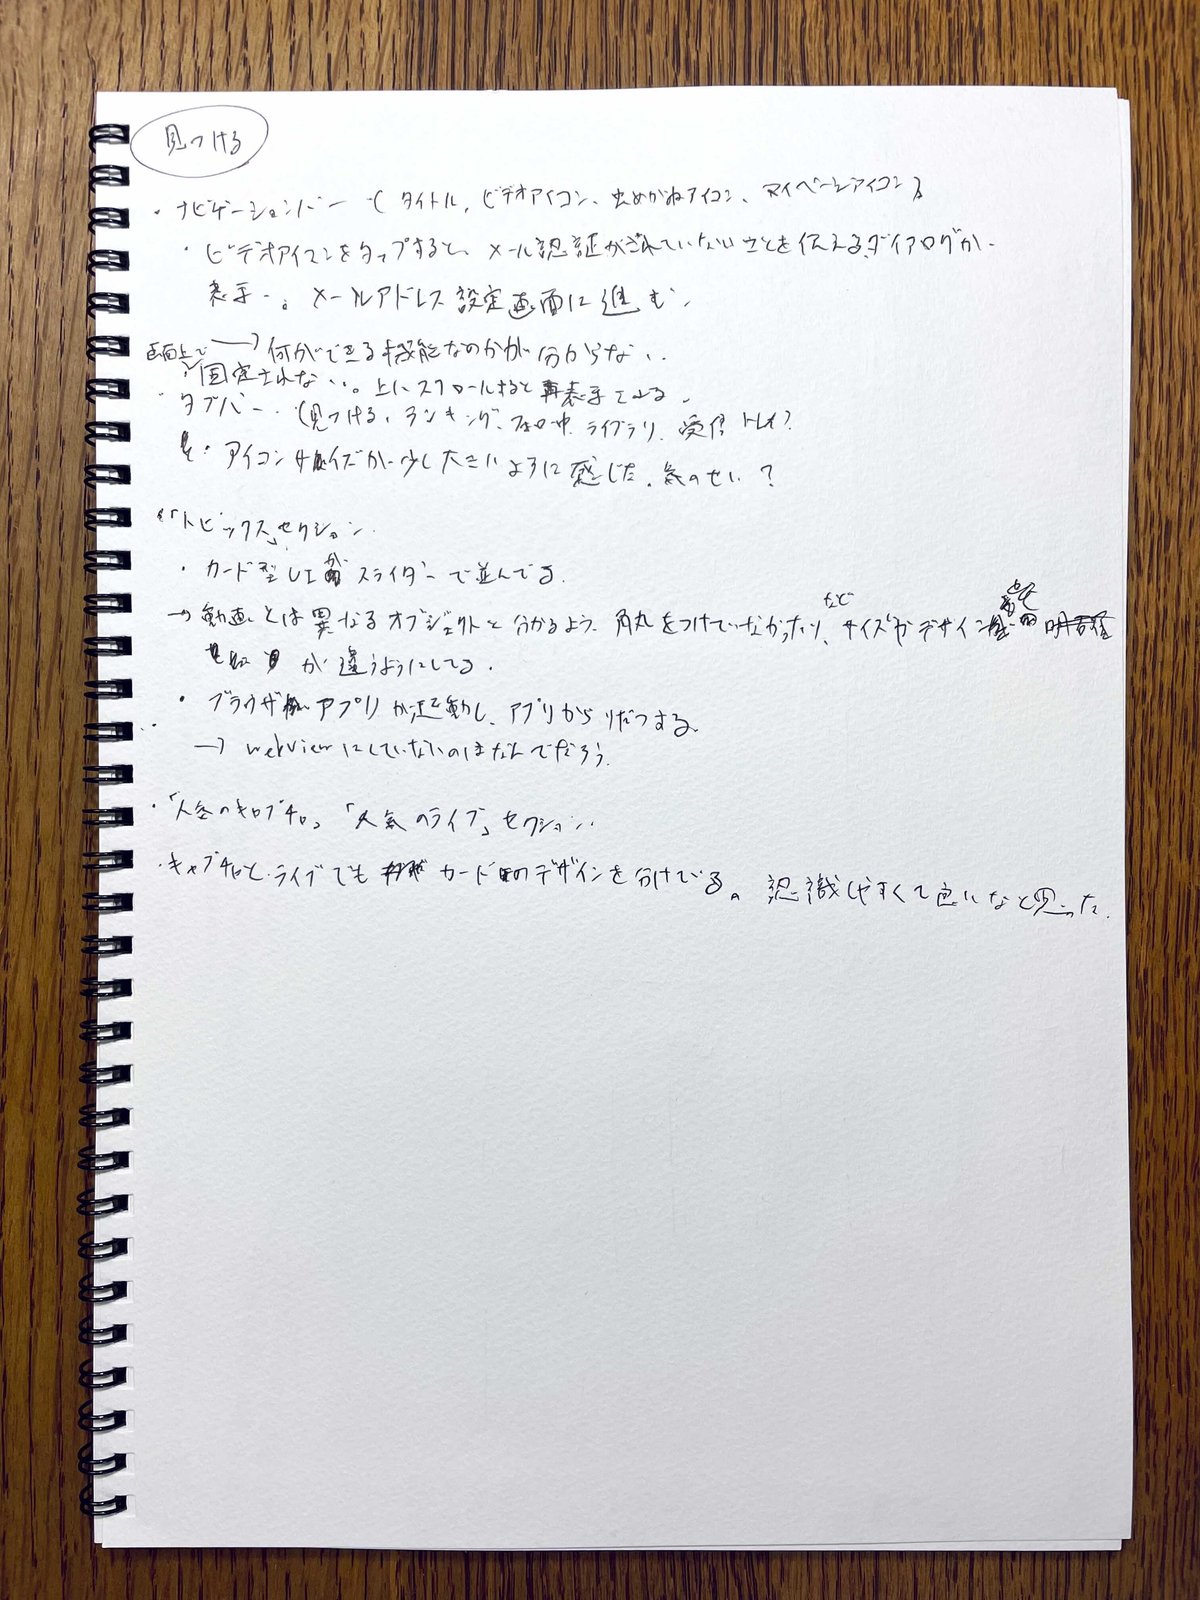 見つける
・ナビゲーションバー （タイトル、ビデオアイコン、虫めがねアイコン、マイページアイコン）
・ビデオアイコンをタップすると、メール認証がされていないことを伝えるダイアログが
表示。メールアドレス設定画面に進む。
→何ができる機能なのかが分からない。
画面上で
・固定されない。上にスクロールすると再表示される。
・タブバー （見つける、ランキング、フォロー中、ライブラリ、受信トレイ？
・アイコンサイズが少し大きいように感じた。気のせい？
・「トピックス」セクション
・カード型UIがスライダーで並んでる。
→動画とは異なるオブジェクトと分かるよう、角丸をつけていなかったり、サイズやデザイン
など
が違うようにしてる。
・ブラウザアプリが起動し、アプリからりだつする。
→webviewにしていないのはなんでだろう。
・「人気のキャプチャ」「人気のライブ」セクション
・キャプチャとライブでもカードのデザインを分けてる。認識しやすくて良いなと思った。